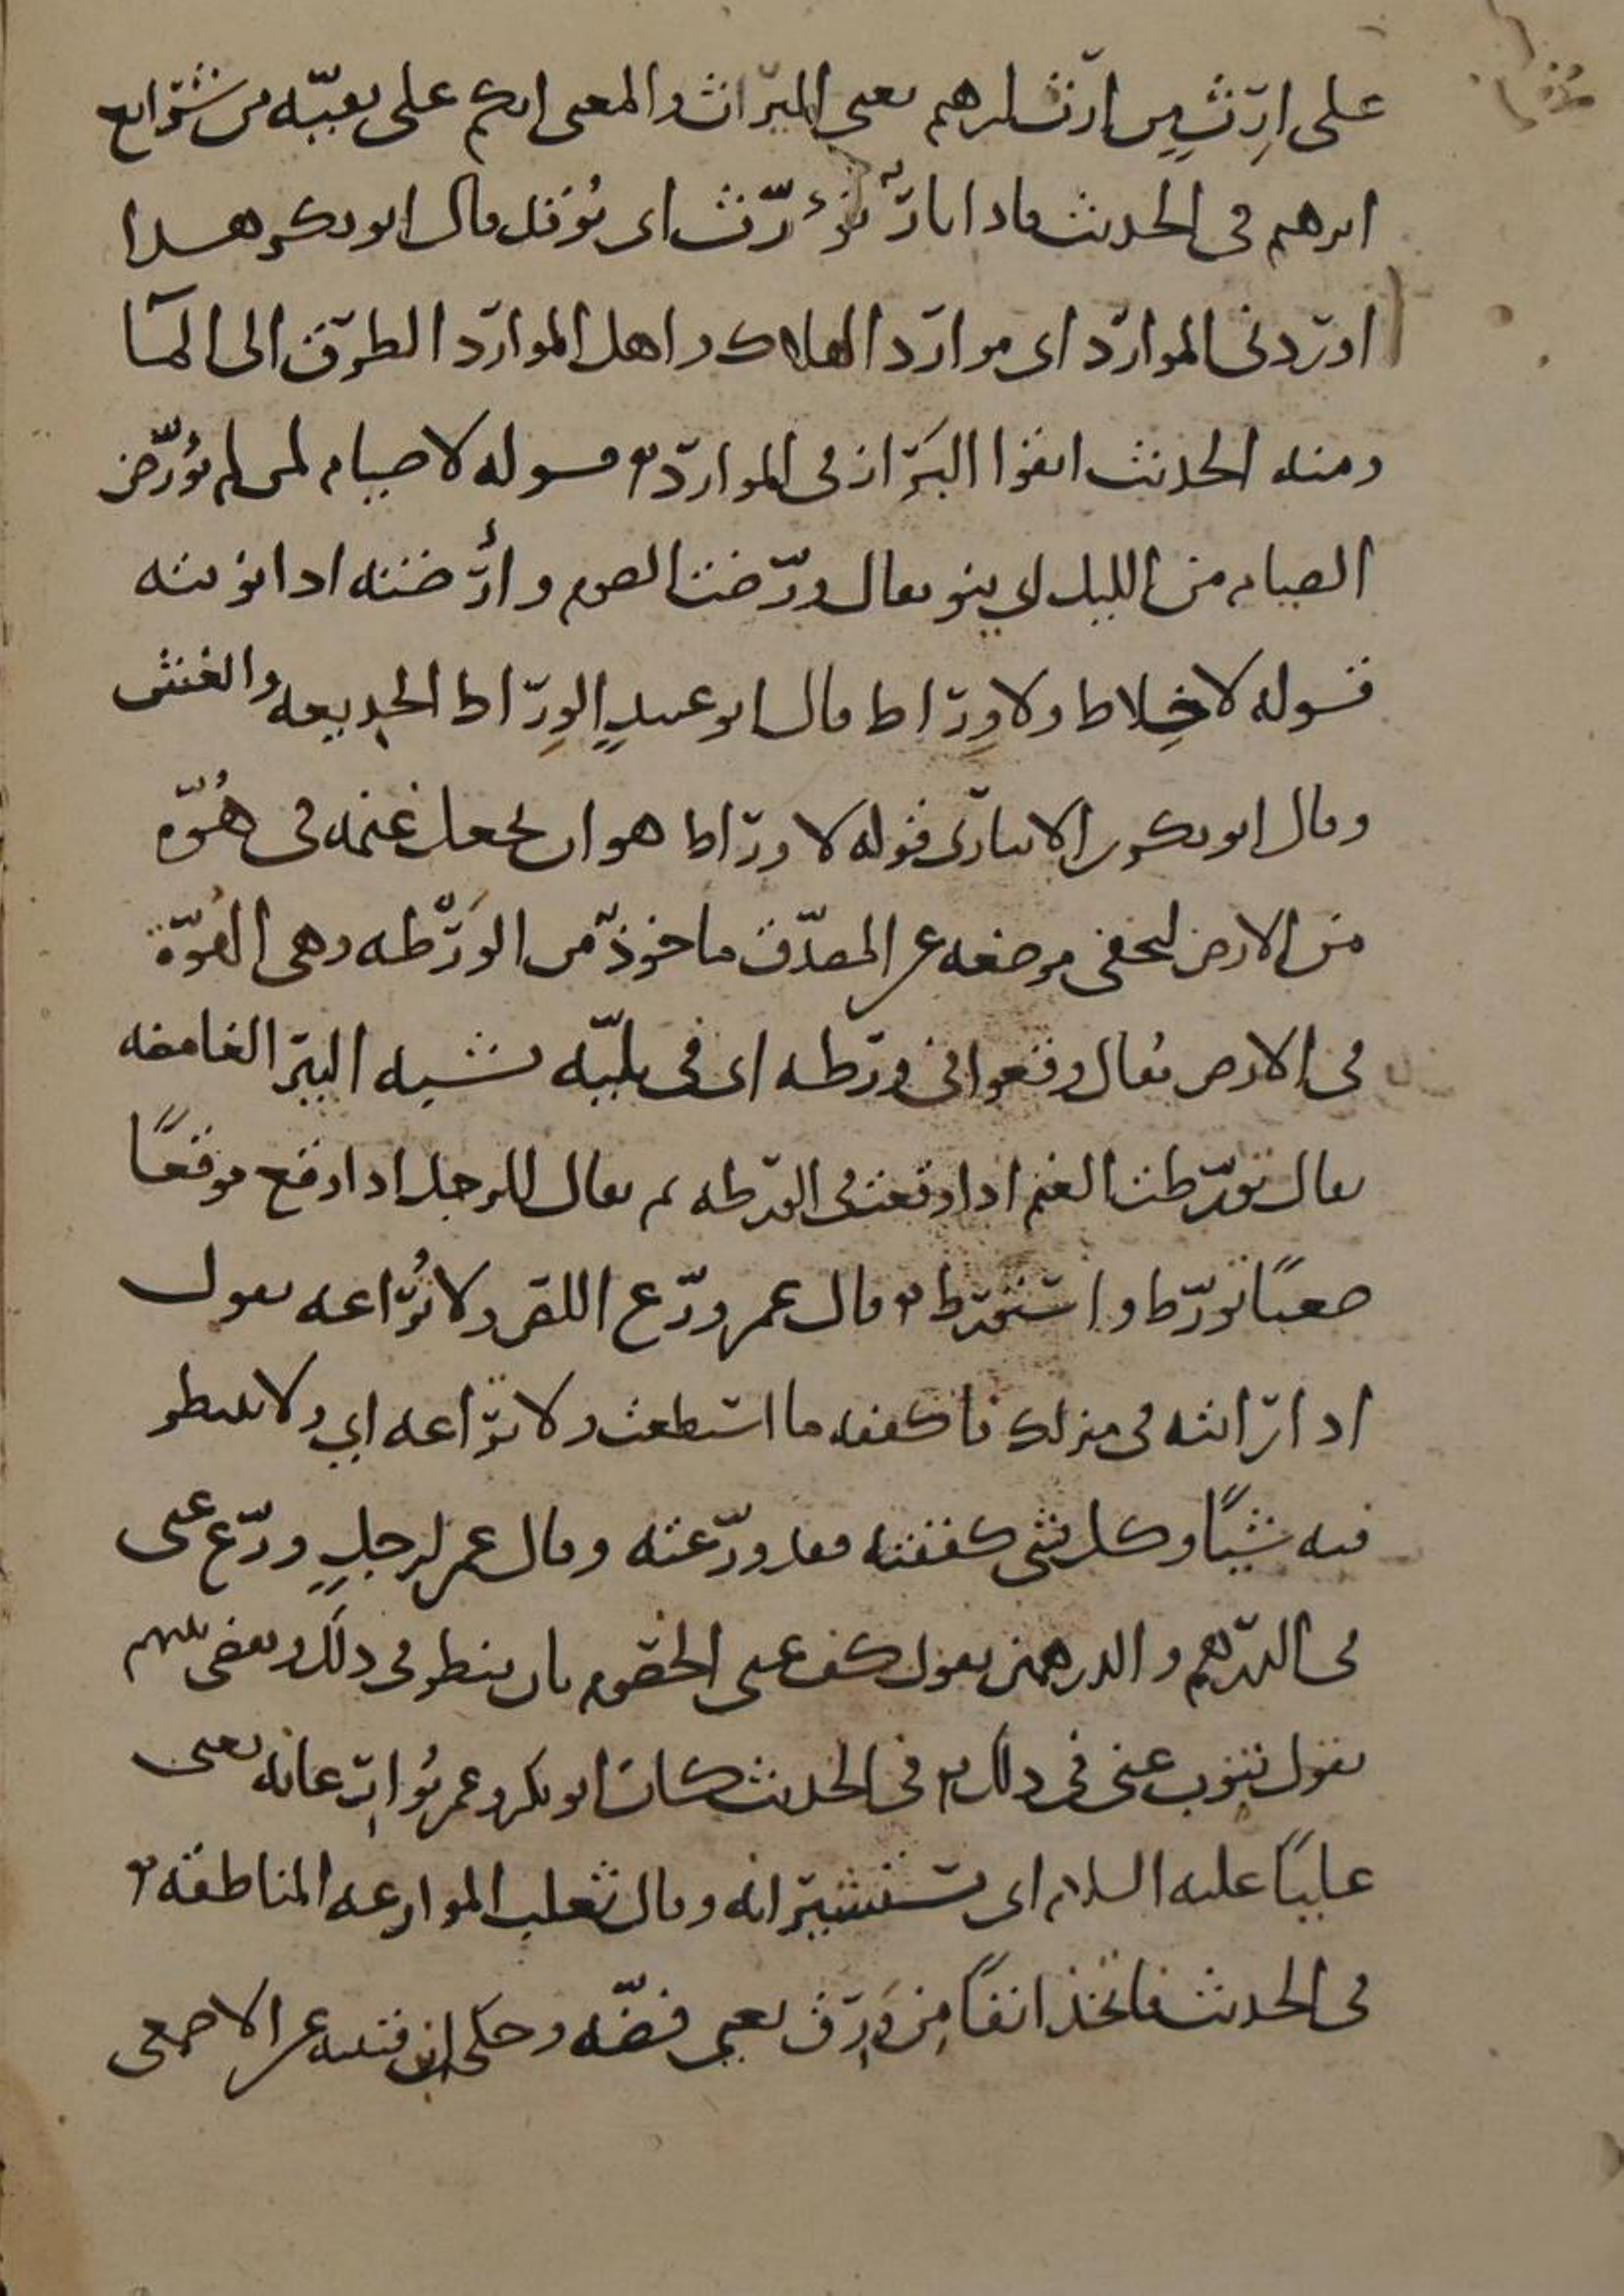 على ارِث من ارث ابرهيم يعنى الميراث والمعنى انكم على بقيّه من شرايع
ابرهيم فى الحديث واذا نارٌ تُؤَرّث اى توقد قال ابو بكر هذا
اوردنى الموارد اى موارد الهلاك واهل الموارد الطرق الى الما
ومنه الحديث اتقوا البَرَاز فى الموارد قوله لا صيام لمن لم يُوَرّض
الصيام من الليل اى ينو يقال ورّضت الصوم وأرّضته اذا نويته
قوله لا خِلاط ولا وِراط قال ابو عبيدٍ الوِراط الخديعه والغش
وقال ابو بكر بن الانبارى قوله لا وراط هو ان يجعل غنمه فى هُوّه
من الارض لتخفى موضعه عن المصدّق ماخوذ من الوَرْطه وهى الهُوّة
فى الارض يُقال وقعوا فى ورطه اى فى بليّه تشبه البير الغامضه
يقال تورّطت الغنم اذا وقعت فى الورطه ثم يقال للرجل اذا وقع موقعًا
صعبًا تورّط واستورط قال عمر ورّع اللص ولا تُراعه يقول
اذا راىته فى منزلك فاكففه ما استطعت ولا تراعه اى ولا تنتظر
فيه شيًا وكل شى كففته فقد ورّعته وقال عمر لرجلٍ ورّع عنى
فى الدرهم والدرهمين يقول كف عنى الخصوم بان ينظر فى ذلك ويقضى بينهم
يقول تنوب عنى فى ذلك فى الحديث كان ابو بكر وعمر يُوارِعانه يعنى
عليًا عليه السلام اى يستشيرانه وقال ثعلب الموارعه المناطقه
فى الحديث فاتخذ انفًا مِن وَرِق يعنى فضّه وحكى ابن قتيبه عن الاصمعى